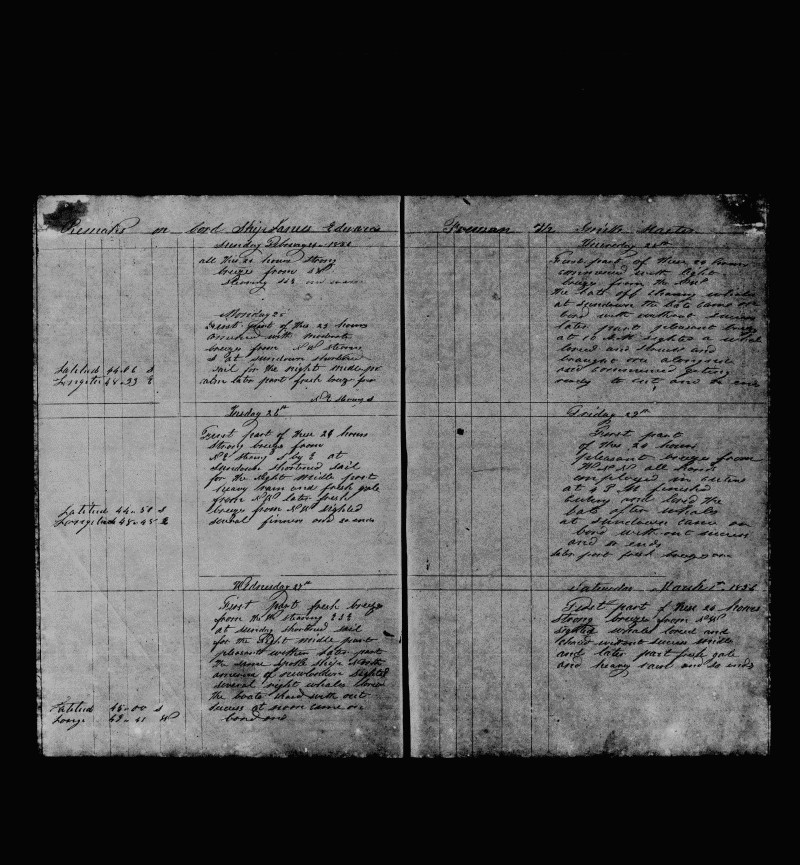 Remarks on bord Ship James Edward
Sunday February 24 1856
all this 24 hours strong
breeze from SW
Stearing
Monday 25
First part of thee 24 hours
comenced with moderate
breeze from N W stearing
S E at sundown shortened
sail for the night midle part
calm later part fresh breeze from
N E stearing S
Latitud 44-06 S
Longitud 48-33 E
Tuesday 26th
First part of thee 24 hours
strong breeze from
N E stearing S by E at
sundown shortened sail
for the Night midle part
heavy rain and fresh gale
from N W later fresh
breeze from N W sighted
several finners and so ends
Latitud 44-50 S
Longitud 48-45 E
Wednesday 27th
First part fresh breeze
from the stearing E S E
at sunday shortened sail
for the Night midle part
plesent wether later part
the same spoke Ship North
america of newlondon sighted
several right whales lowered
the boats chasd with out
sucess at noon came on
bord and
Latitud 45-00 S
Longe 49-41
Freeman H Smith Master
Thursday 28th
First part of thee 24 hours
commenced with light
breeze from the
the bots off chasing whales
at sundown the bots came on
bord with without sucess
later part plesent breeze
at 10 A M sighted a whale
lowed and struck and
braught one alongside
and commenced geting
ready to cut and so ends
Friday 29th
First part
of thee 24 hours
plesent breeze from
W N W all hands
employed in cuting
at 4 P M finished
cuting and lowd the
bots after whales
at sundown came on
bord without sucess
and so ends
later part fresh breeze
Saturday March 1st 1856
First part of thee 24 hours
strong breeze from NW
sighted whales lowed and
chasd without sucess midle
and later part fresh gale
and heavy rain and so ends